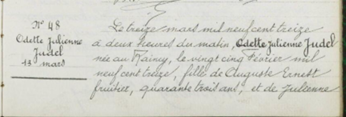 N° 48
Odette Julienne
Judel
13 mars
Le treize mars mil neuf cent treize
à deux heures du matin, Odette Julienne Judel
née au Raincy, le vingt cinq Février mil
neuf cent treize, fille de Auguste Ernest
quarante trois ans, et de Julienne